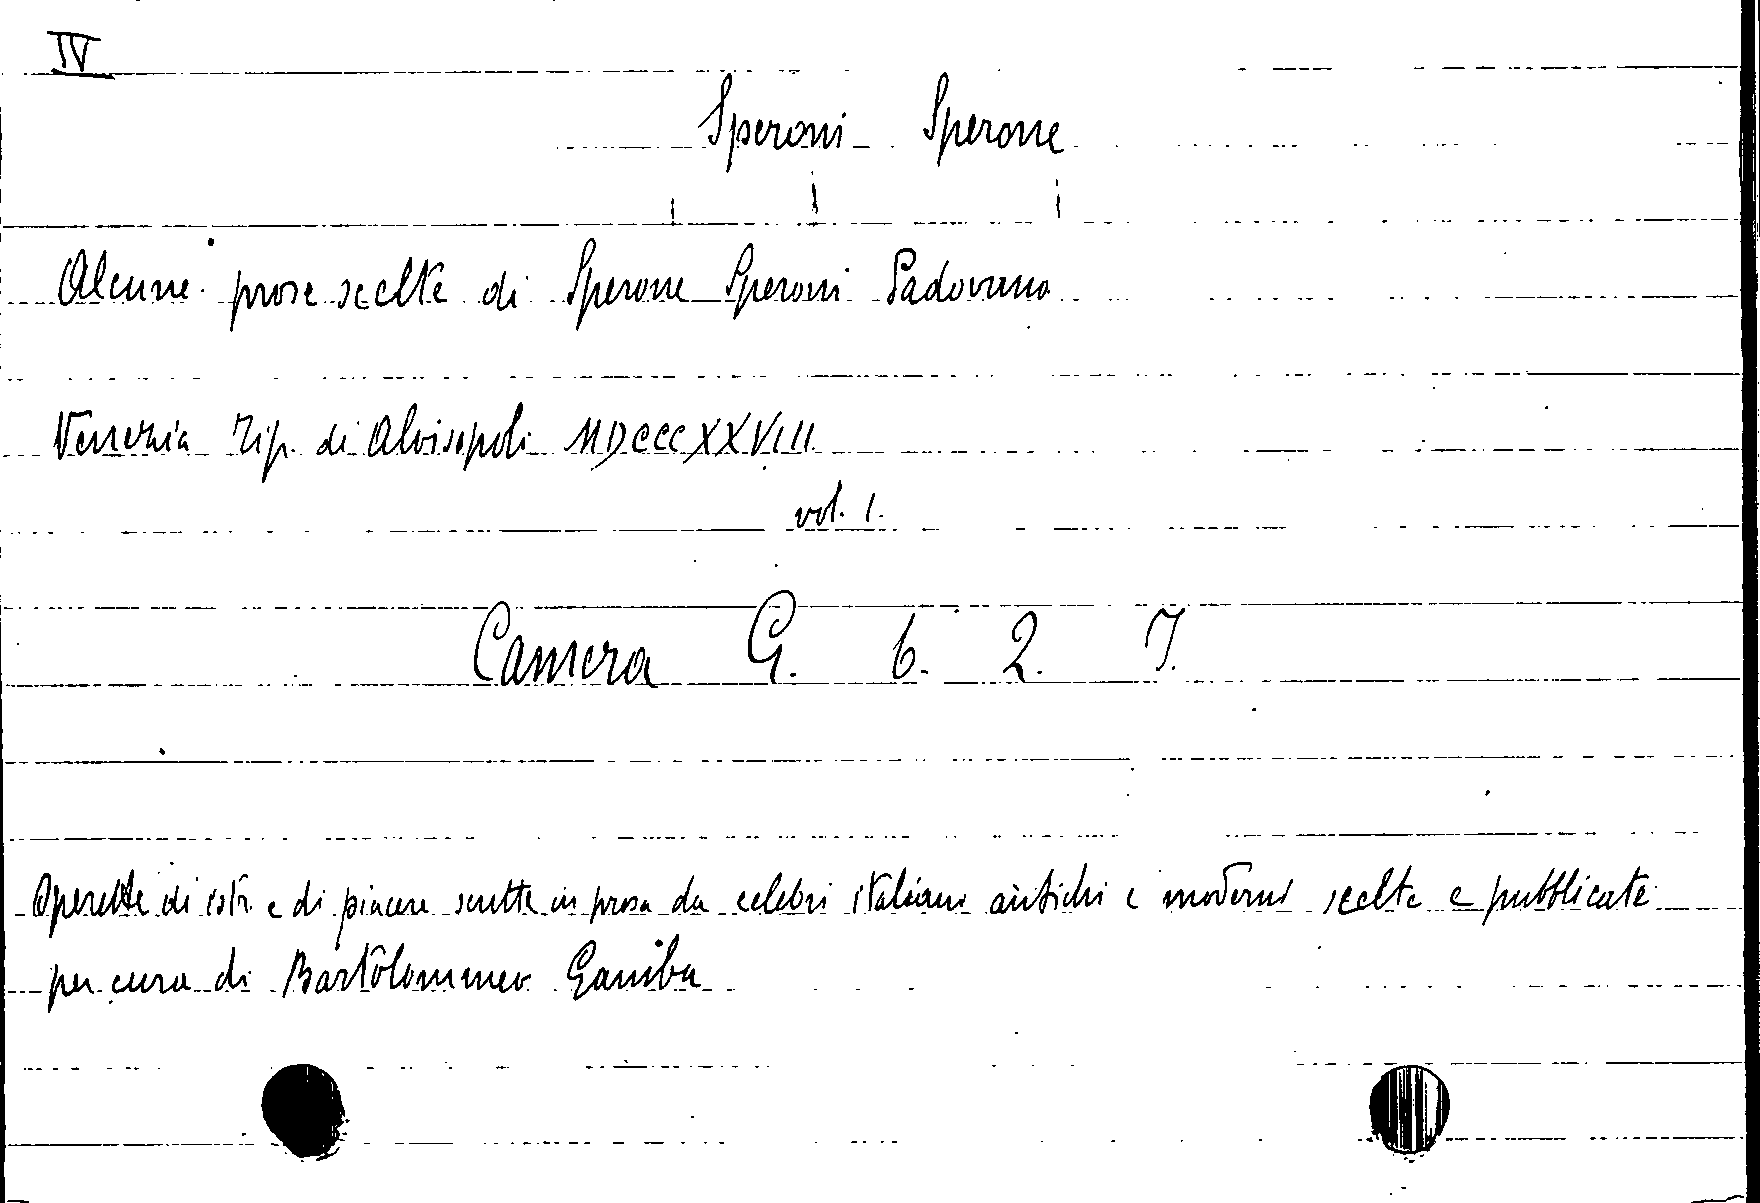 IV
Speroni Sperone
Alcune prose scelte di Sperone Speroni Padovano
Venezia Tip. di Alvisopoli MDCCCXXVIII
vol. 1.
Camera G. 6. 2. 7.
Operette di istr. e di piacere scritte in prosa da celebri italiani antichi e moderni scelte e pubblicate
per cura di Bartolommeo Gamba